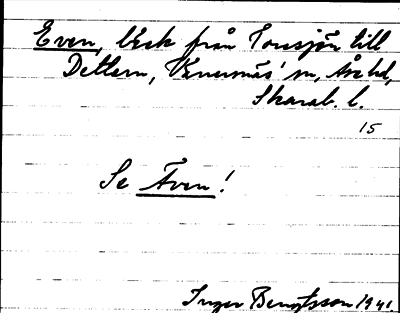 Even, bäck från Torsjön till
Dettern, Venersnäs' sn, Åse hd,
Skarab. l.
15
Se Även!
Inger Bengtsson 1941.